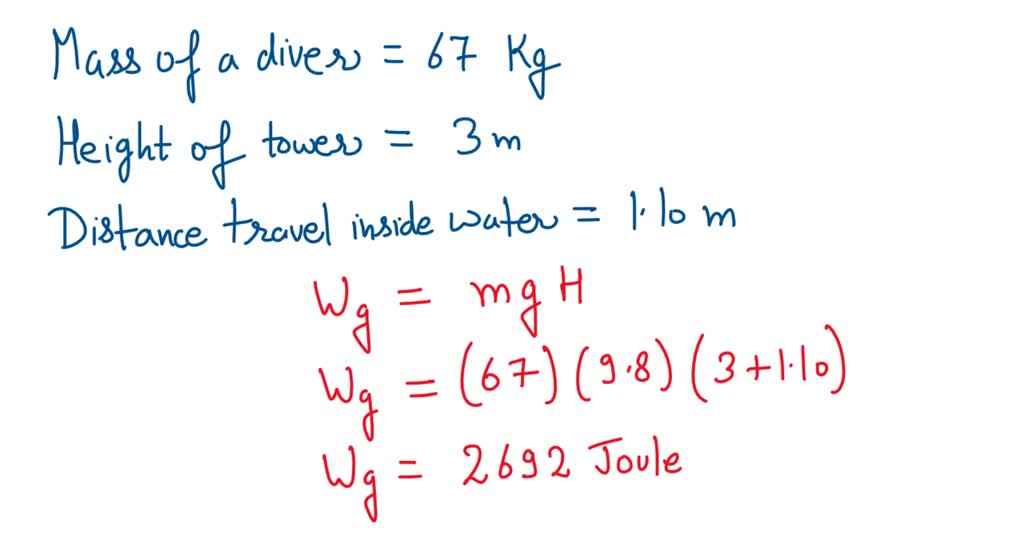 Mass of a diver = 67 Kg
Height of tower = 3 m
Distance travel inside water = 1.10 m
Wg = mg H
Wg = (67) (9.8) (3+1.10)
Wg = 2692 Joule